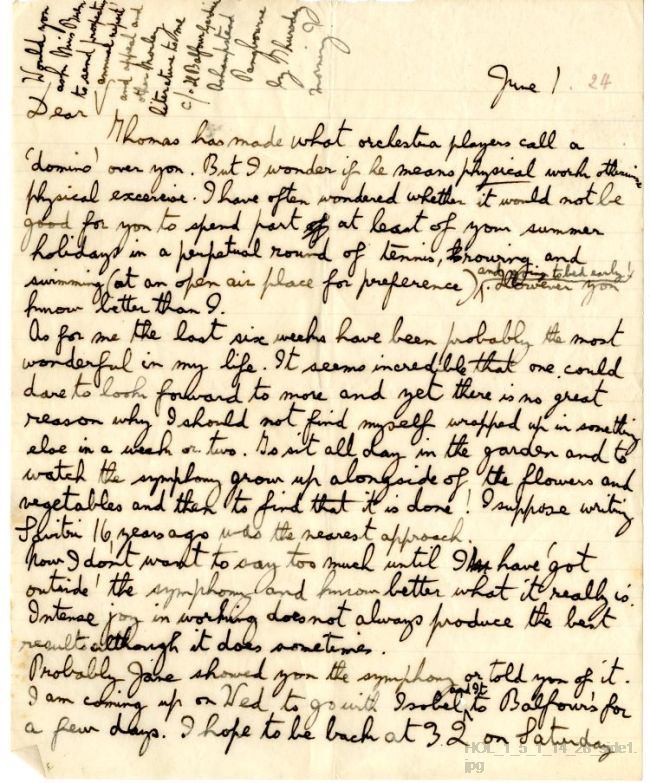 Would you
ask Miss Burn
to send prospectus
annual report
and appeal and
other Morley
literature to me
c/o H Balfour Gardiner
Ashampstead
Pangbourne
by Thursday
morning
June 1. 24
Dear
Thomas has made what orchestra players call a
'domino' over you. But I wonder if he means physical work otherwise
physical excercise. I have often wondered whether it would not be
good for you to spend part of at least of your summer
holidays in a perpetual round of tennis, rowing and
swimming (at an open air place for preference) and going to bed early! However you
know better than I.
As for me the last six weeks have been probably the most
wonderful in my life. It seems incredible that one could
dare to look forward to more and yet there is no great
reason why I should not find myself wrapped up in something
else in a week or two. To sit all day in the garden and to
watch the symphony grow up alongside of the flowers and
vegetables and then to find that it is done! I suppose writing
Savitri 16 years ago was the nearest approach.
Now I don't want to say too much until I have 'got
outside' the symphony and know better what it really is.
Intense joy in working does not always produce the best
results although it does sometimes.
Probably Jane showed you the symphony or told you of it.
I am coming up on Wed to go with Isobel and It to Balfour's for
a few days. I hope to be back at 32 on Saturday
HOL_1_5_1_14_28_side1.
jpg